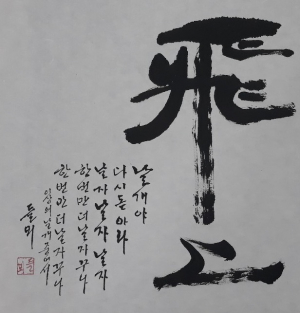 飛上
날개야
다시 돋아라
날자 날자 날자
한번만 더 날자꾸나
한번만 더 날자꾸나
이상의 날개 중에서
들뫼